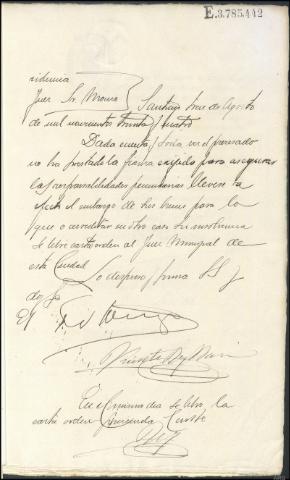 E.3.785.442
videncia
Juez Sr. Mouro } Santiago trece de Agosto
de mil novecientos treinta y cuatro
Dada cuenta; toda vez el procesado
no ha prestado la fianza exigida para asegurar
las responsabilidades pecuniarias llévese a
efecto el embargo de sus bienes para lo
que o acreditar en otro caso su insolvencia
se libre carta orden al Juez Municipal de
esta Ciudad.
Lo dispuso y firma SS y
doy fe
En el mismo día se libro la
carta orden Certifico